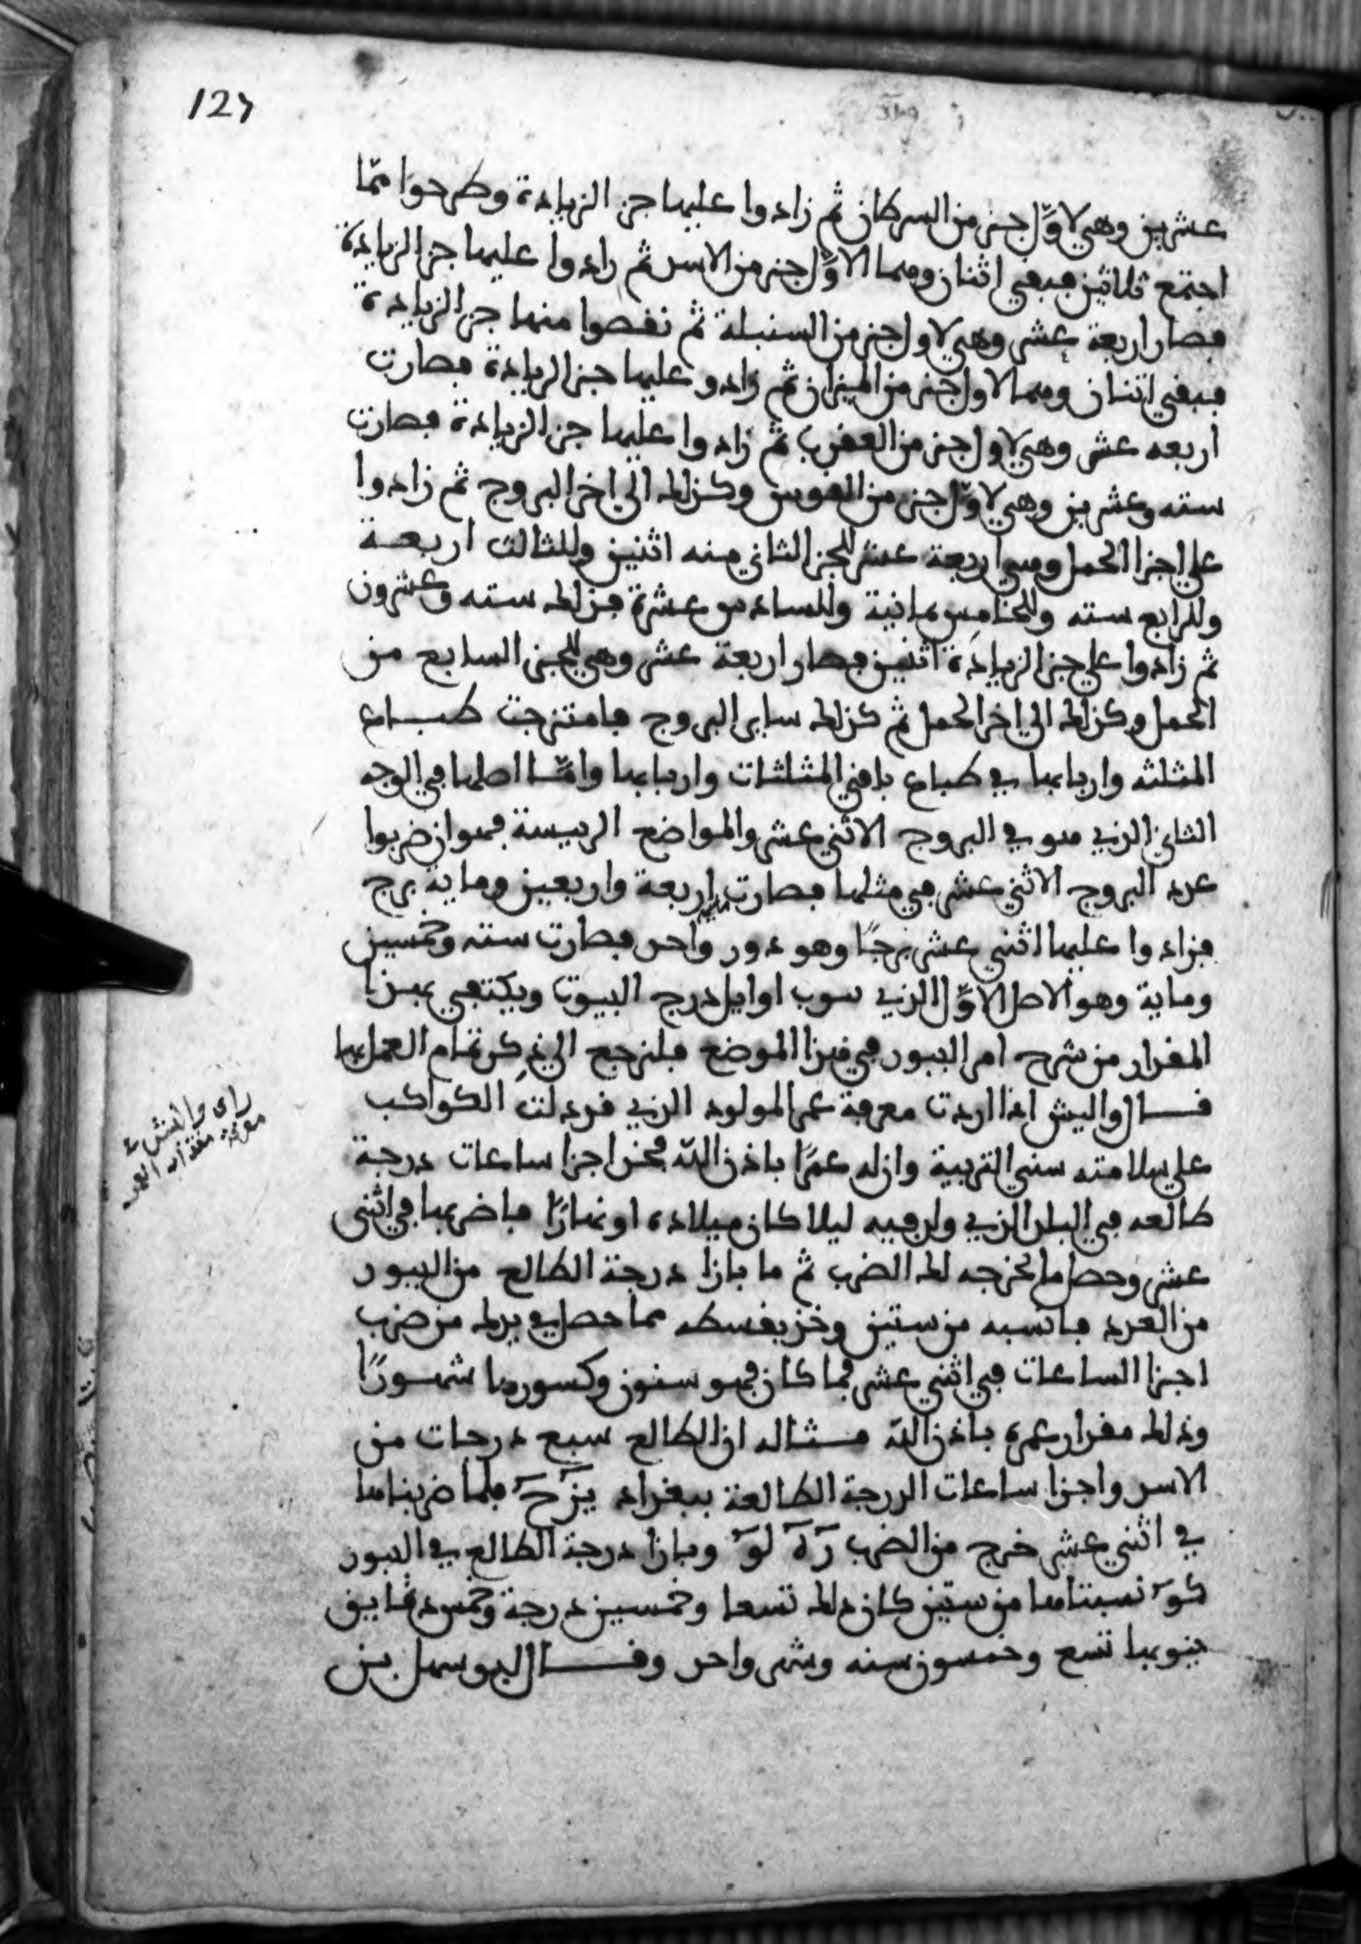 127
عشرين وهي لاول جز من السرطان ثم زادوا عليها جز الزيادة وطرحوا مما
اجتمع ثلاثين فبقي اثنان وهما لاول جز من الاسد ثم زادوا عليها جز الزيادة
فصار اربعة عشر وهي لاول جز من السنبلة ثم نقصوا منها جز الزيادة
فبقي اثنان وهما لاول جز من الميزان ثم زادو عليها جز الزيادة فصارت
اربعه عشر وهي لاول جز من العقرب ثم زادوا عليها جز الزيادة فصارت
سته وعشرين وهي لاول جز من القوس وكذلك الي اخر البروج ثم زادوا
علي اجزا الحمل وهي اربعة عشر للجز الثاني منه اثنين وللثالث اربعة
وللرابع سته وللخامس ثمانية وللسادس عشرة فذلك سته وعشرون
ثم زادوا علي جز الزيادة اثنين فصار اربعة عشر وهي للجز السابع من
الحمل وكذلك الي اخر الحمل ثم كذلك ساير البروج فامتزجت طبايع
المثلثه واربابها في طبايع باقي المثلثات واربابها واما اصلها في الوجه
الثاني الذي هو في البروج الاثني عشر والمواضع الرييسة فهو ان ضربوا
عدد البروج الاثني عشر في مثلها فصارت اربعة واربعين وماية برج
فزادوا عليها اثني عشر برجا وهو دور واحد فصارت سته وخمسين
وماية وهو الاصل الاول الذي سوب اوايل درج البيوت ويكتفي بهذا
المقدار من شرح امر الببور في هذا الموضع فلنرجع الي ذكر تمام العمل بها
قال واليش اذا اردت معرفة عمر المولود الذي قد دلت الكواكب
علي سلامته سني التربية وان له عمرا باذن الله فخذ اجزا ساعات درجة
طالعه في البلد الذي ولد فيه ليلا كان ميلاده او نهارا فاضربها في اثني
عشر وحصل ما يخرجه لك الضرب ثم ما بازا درجة الطالع من الببور
من العدد فانسبه من ستين وخذ بقسطه مما حصل في يدك من ضرب
اجزا الساعات في اثني عشر فما كان فهو سنون وكسورها شهورا
وذلك مقدار عمره باذن الله مثاله ان الطالع سبع درجات من
الاسد واجزا ساعات الدرجة الطالعة ببغداد يز ح فلما ضربناها
في اثني عشر خرج من الضرب ره لو وبازا درجة الطالع في الببور
كو نسبناها من ستين كان ذلك تسعا وخمسين درجة وخمس دقايق
فيوبها تسع وخمسون سنه وشهر واحد وقال ابو سهل بن
راى واليش في
معرفة مقدار العمر